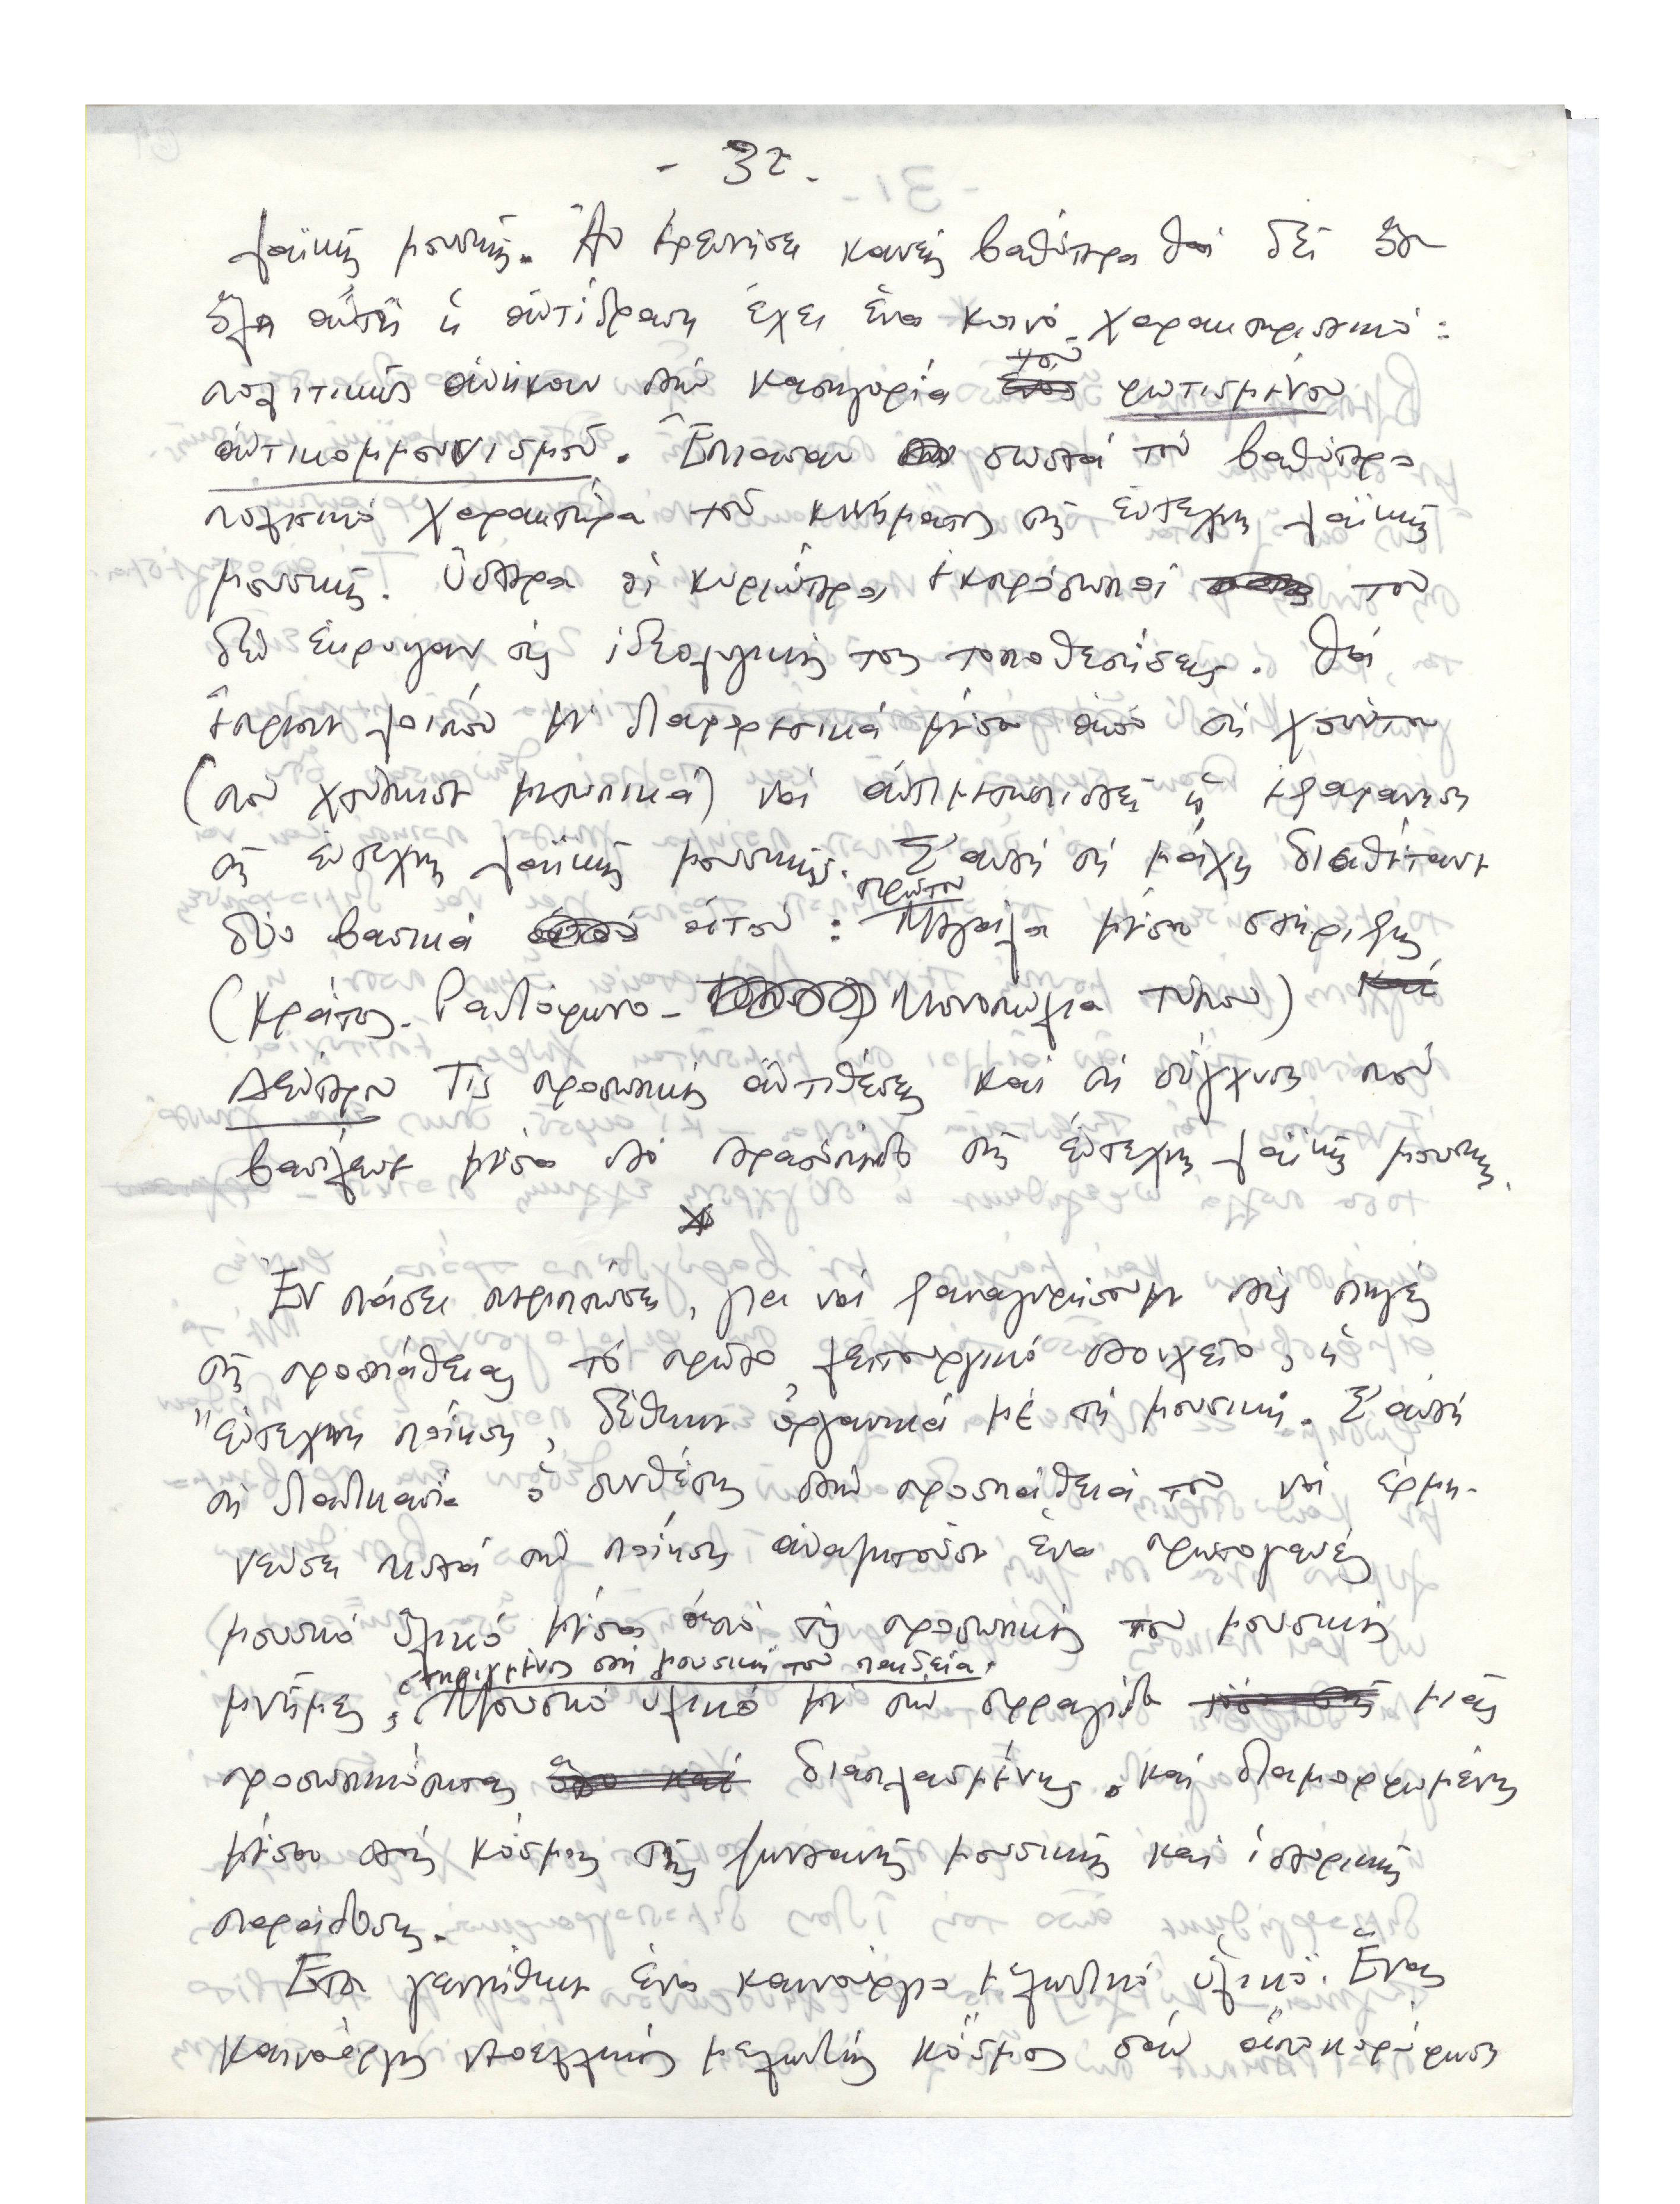 - 32 -
λαϊκῆς μουσικῆς. Ἂν ἐρευνήσει κανείς βαθύτερα θά δεῖ ὅτι
ὅλη αὐτή ἡ ἀντίδραση ἔχει ἕνα κοινό χαρακτηριστικό:
πολιτικῶς ἀνήκουν στήν κατηγορία τοῦ φωτισμένου
ἀντικομμουνισμοῦ. Ἔπιασαν σωστά τόν βαθύτερο
πολιτικό χαρακτήρα τοῦ κινήματος τῆς ἔντεχνης λαϊκῆς
μουσικῆς. Ὕστερα οἱ κυριώτεροι ἐκπρόσωποί του
δέν ἔκρυψαν τίς ἰδεολογικές τους τοποθετήσεις. Θά
ἔπρεπε λοιπόν μέ διαφορετικά μέσα ἀπό τή χούντα
(πού χτύπησε μετωπικά) νά ἀντιμετωπισθεῖ ἡ ἐξαφάνιση
τῆς ἔντεχνης λαϊκῆς μουσικῆς. Σ' αὐτή τή μάχη διαθέτανε
δύο βασικά ἀτού: πρῶτον Μεγάλα μέσα στήριξης
(Κράτος - Ραδιόφωνο - Μονοπώλια τύπου)
Δεύτερον Τίς προσωπικές ἀντιθέσεις καί τή σύγχυση πού
βασίλευε μέσα στό στρατόπεδο τῆς ἔντεχνης λαϊκῆς μουσικῆς.
Ἐν πάσει περιπτώσει, γιά νά ξαναγυρίσουμε στίς πηγές
τῆς προσπάθειας τό πρῶτο λειτουργικό στοιχεῖο, ἡ
"ἔντεχνη ποίηση, δέθηκε ὀργανικά μέ τή μουσική. Σ' αὐτή
τή διαδικασία ὁ συνθέτης στήν προσπάθειά του νά ἑρμη-
νεύσει πιστά τήν ποίηση ἀναζητοῦσε ἕνα πρωτογενές
μουσικό ὑλικό μέσα ἀπό τίς προσωπικές του μουσικές
στηριγμένος στή μουσική του παιδεία.
μνῆμες, Μουσικό ὑλικό μέ τήν σφραγίδα μιᾶς
προσωπικότητας διαπλασμένης καί διαμορφωμένης
μέσα στούς κόσμους τῆς ζωντανῆς μουσικῆς καί ἱστορικῆς
παράδοσης.
Ἔτσι γεννήθηκε ἕνα καινούργιο μελωδικό ὑλικό. Ἕνας
καινούργιος νεοελληνικός μελωδικός κόσμος σάν ἀποκορύφωση